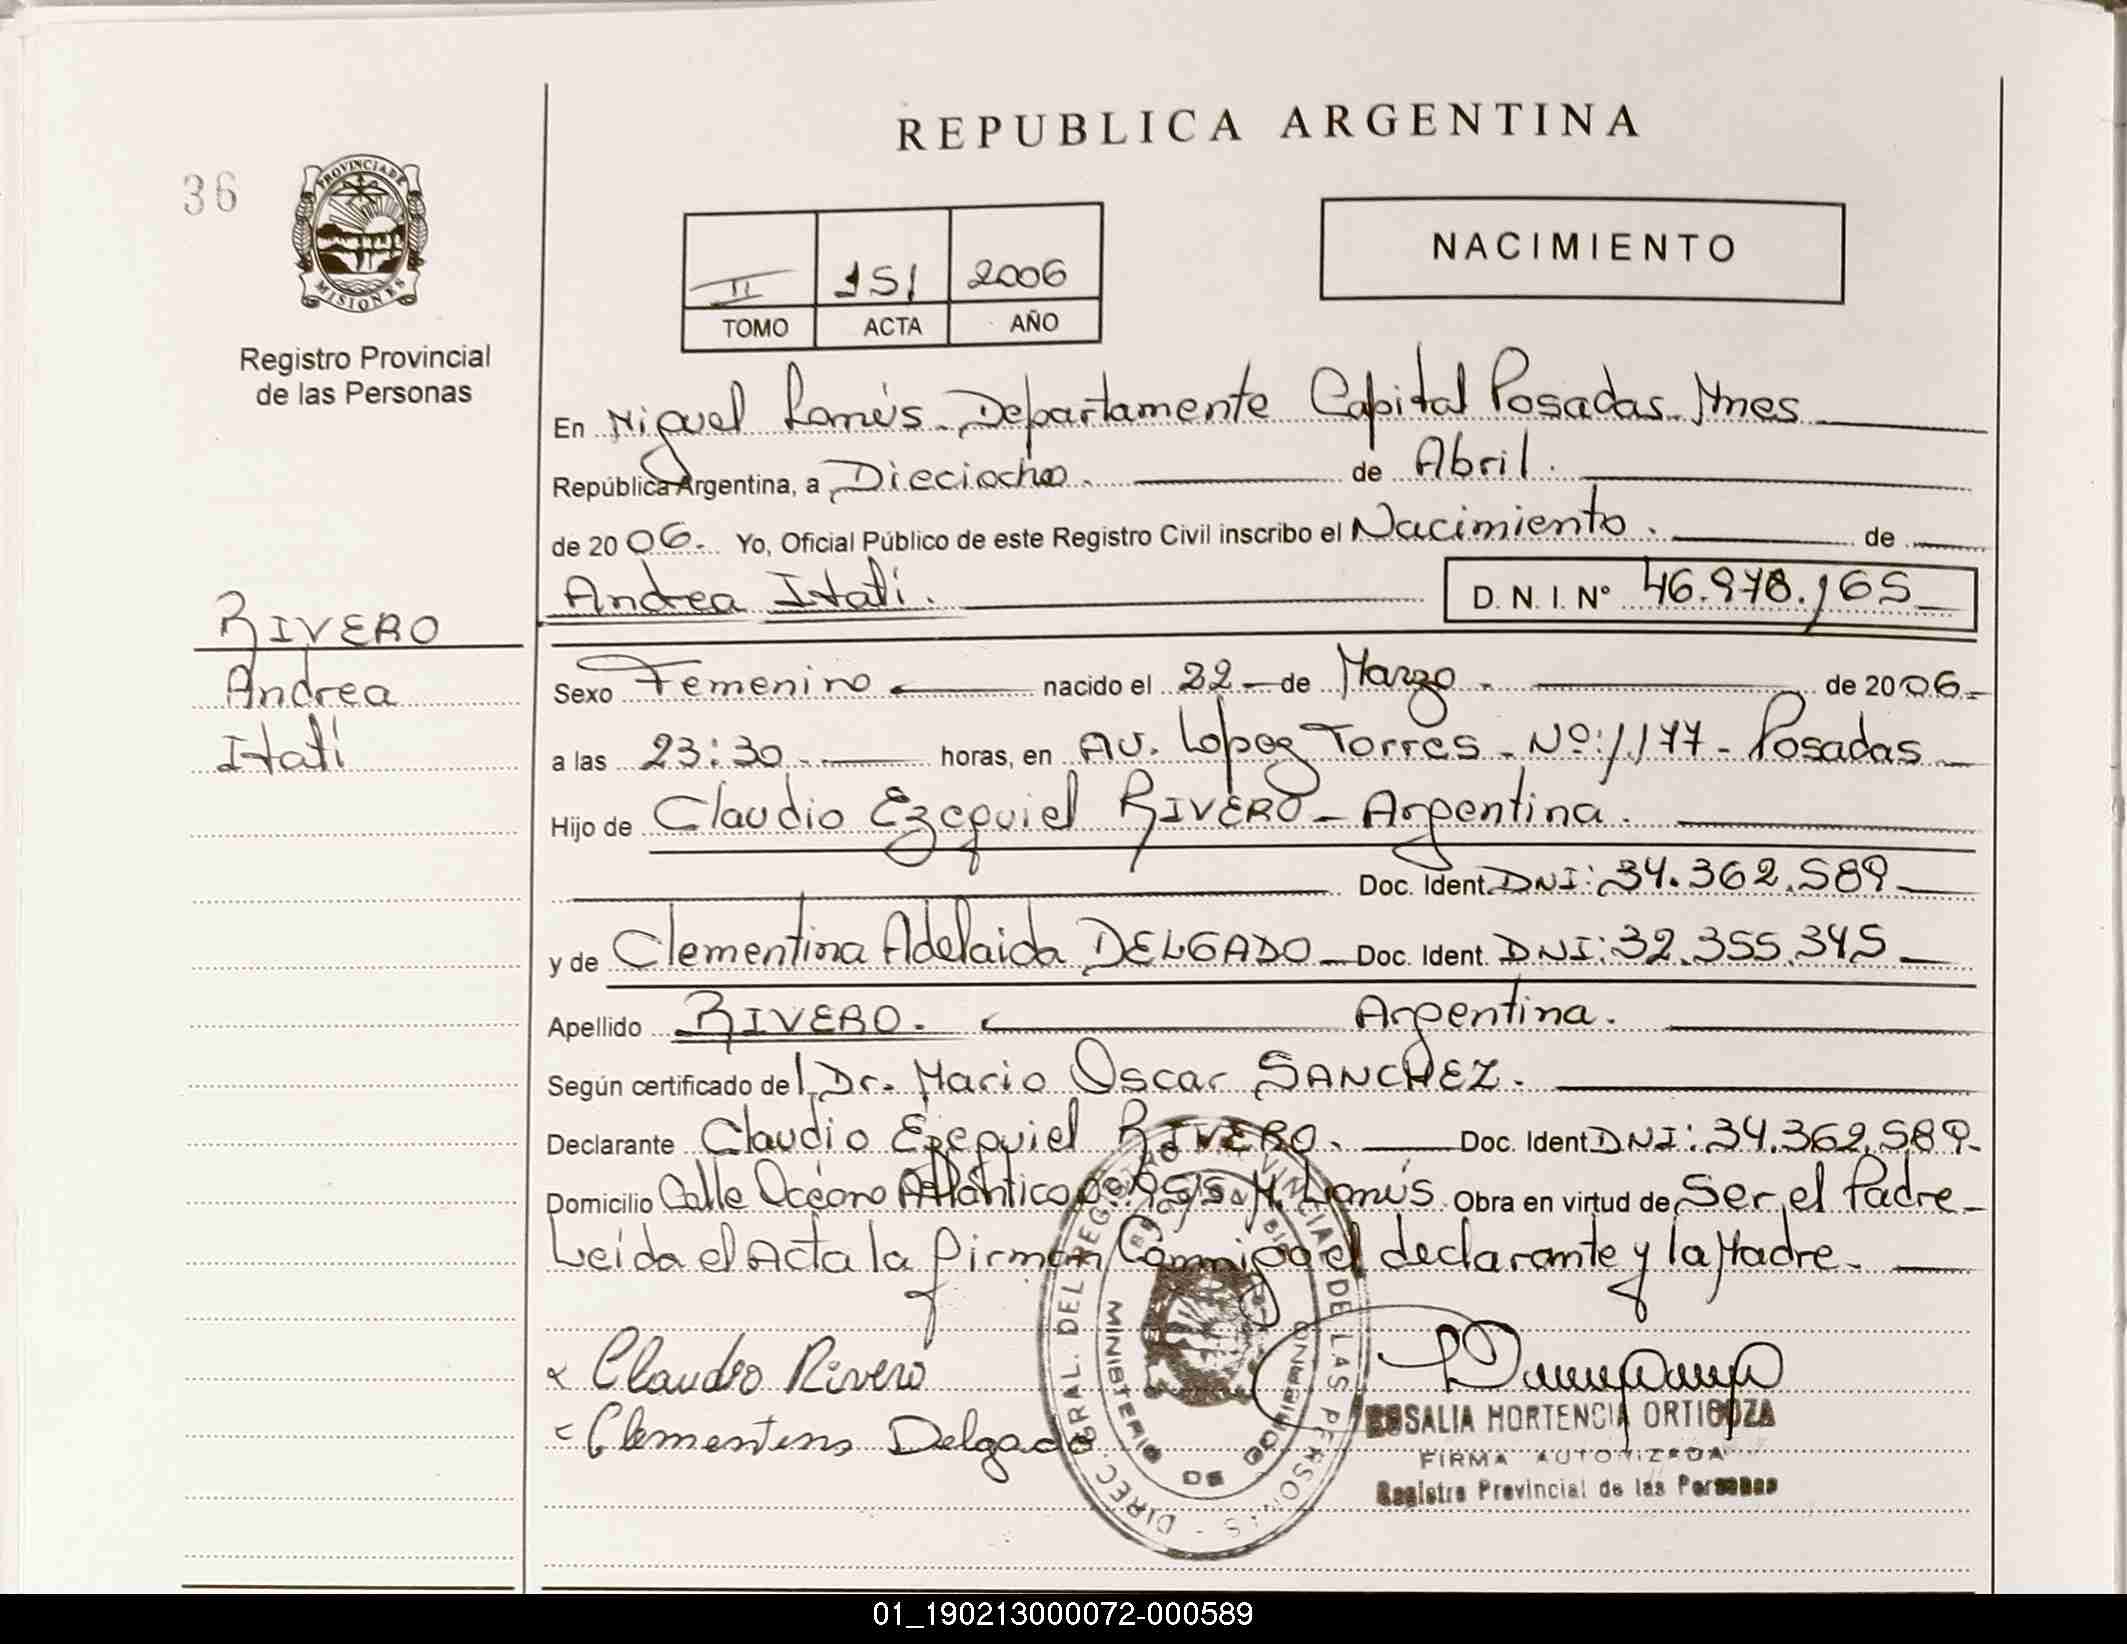 REPUBLICA ARGENTINA
36
PROVINCIA DE
MISIONES
Registro Provincial
de las Personas
II 151 2006
TOMO ACTA AÑO
NACIMIENTO
En Miguel Lanús - Departamente Capital Posadas. Mnes
República Argentina, a Dieciocho. de Abril.
de 2006. Yo, Oficial Público de este Registro Civil inscribo el Nacimiento. de
Andrea Itati. D. N. I. Nº 46.978.165
RIVERO
Andrea
Itatí
Sexo Femenino nacido el 22 de Marzo. de 2006.
a las 23:30 horas, en Av. Lopez Torres - Nº: 1.177 - Posadas
Hijo de Claudio Ezequiel RIVERO - Argentina.
Doc. Ident. DNI: 34.362.589
y de Clementina Adelaida DELGADO Doc. Ident. DNI: 32.355.345
Apellido RIVERO. Argentina.
Según certificado del Dr. Mario Oscar SANCHEZ.
Declarante Claudio Ezequiel RIVERO. Doc. Ident. DNI: 34.362.589-
Domicilio Calle Océano Atlántico M. Lanús. Obra en virtud de Ser el Padre
Leída el Acta la firman Conmigo el declarante y la Madre.
Claudio Rivero
Clementina Delgado
DIREC. GRAL. DEL REGISTRO PROVINCIAL DE LAS PERSONAS
MINISTERIO DE GOBIERNO
ROSALIA HORTENCIA ORTIGOZA
FIRMA AUTORIZADA
Registro Provincial de las Personas
01_190213000072-000589